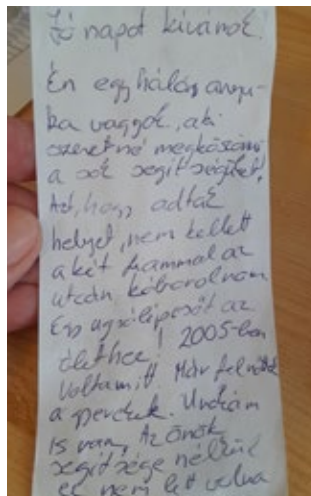 Jó napot kívánok.
Én egy hálás anyu-
ka vagyok, aki
szeretné megköszönni
a sok segítséget!
Azt, hogy adtak
helyet, nem kellett
a két fiammal az
utcán kóborolnom.
Egy ugródeszkát az
élethez! 2005-ben
voltam itt. Már felnőttek
a gyerekek. Unokám
is van. Az önök
segítsége nélkül
ez nem lett volna